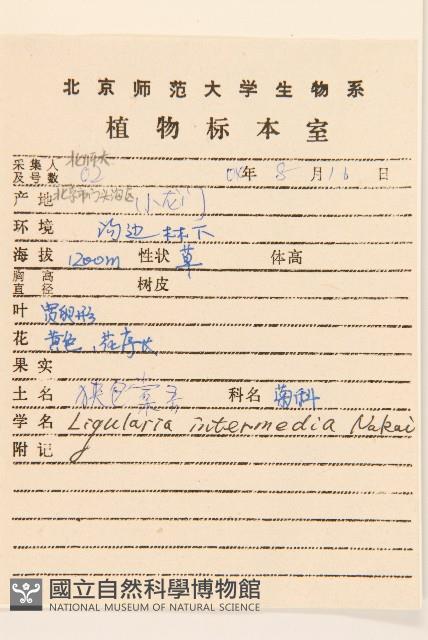 北京师范大学生物系
植物标本室
采集人及号数 北师大 02 04年 8月16日
产地 北京市门头沟区(小龙门)
环境 沟边林下
海拔 1200m 性状 草 体高
胸高直径 树皮
叶 肾形
花 黄色、花序长
果实
土名 狭苞橐吾 科名 菊科
学名 Ligularia intermedia Nakai
附记
國立自然科學博物館
NATIONAL MUSEUM OF NATURAL SCIENCE